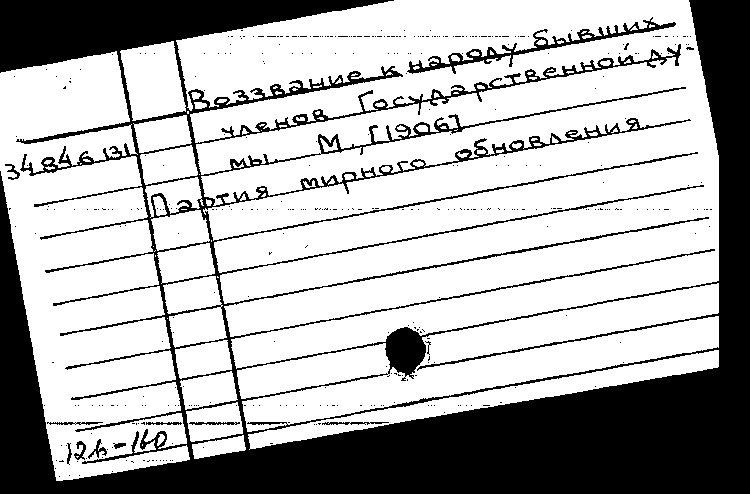 Воззвание к народу бывших
членов Государственной ду-
мы. М., [1906]
34846 131
Партия мирного обновления.
126-160